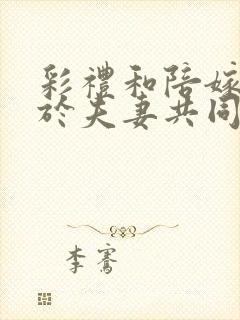 彩禮和陪嫁
於夫妻共同
李騫